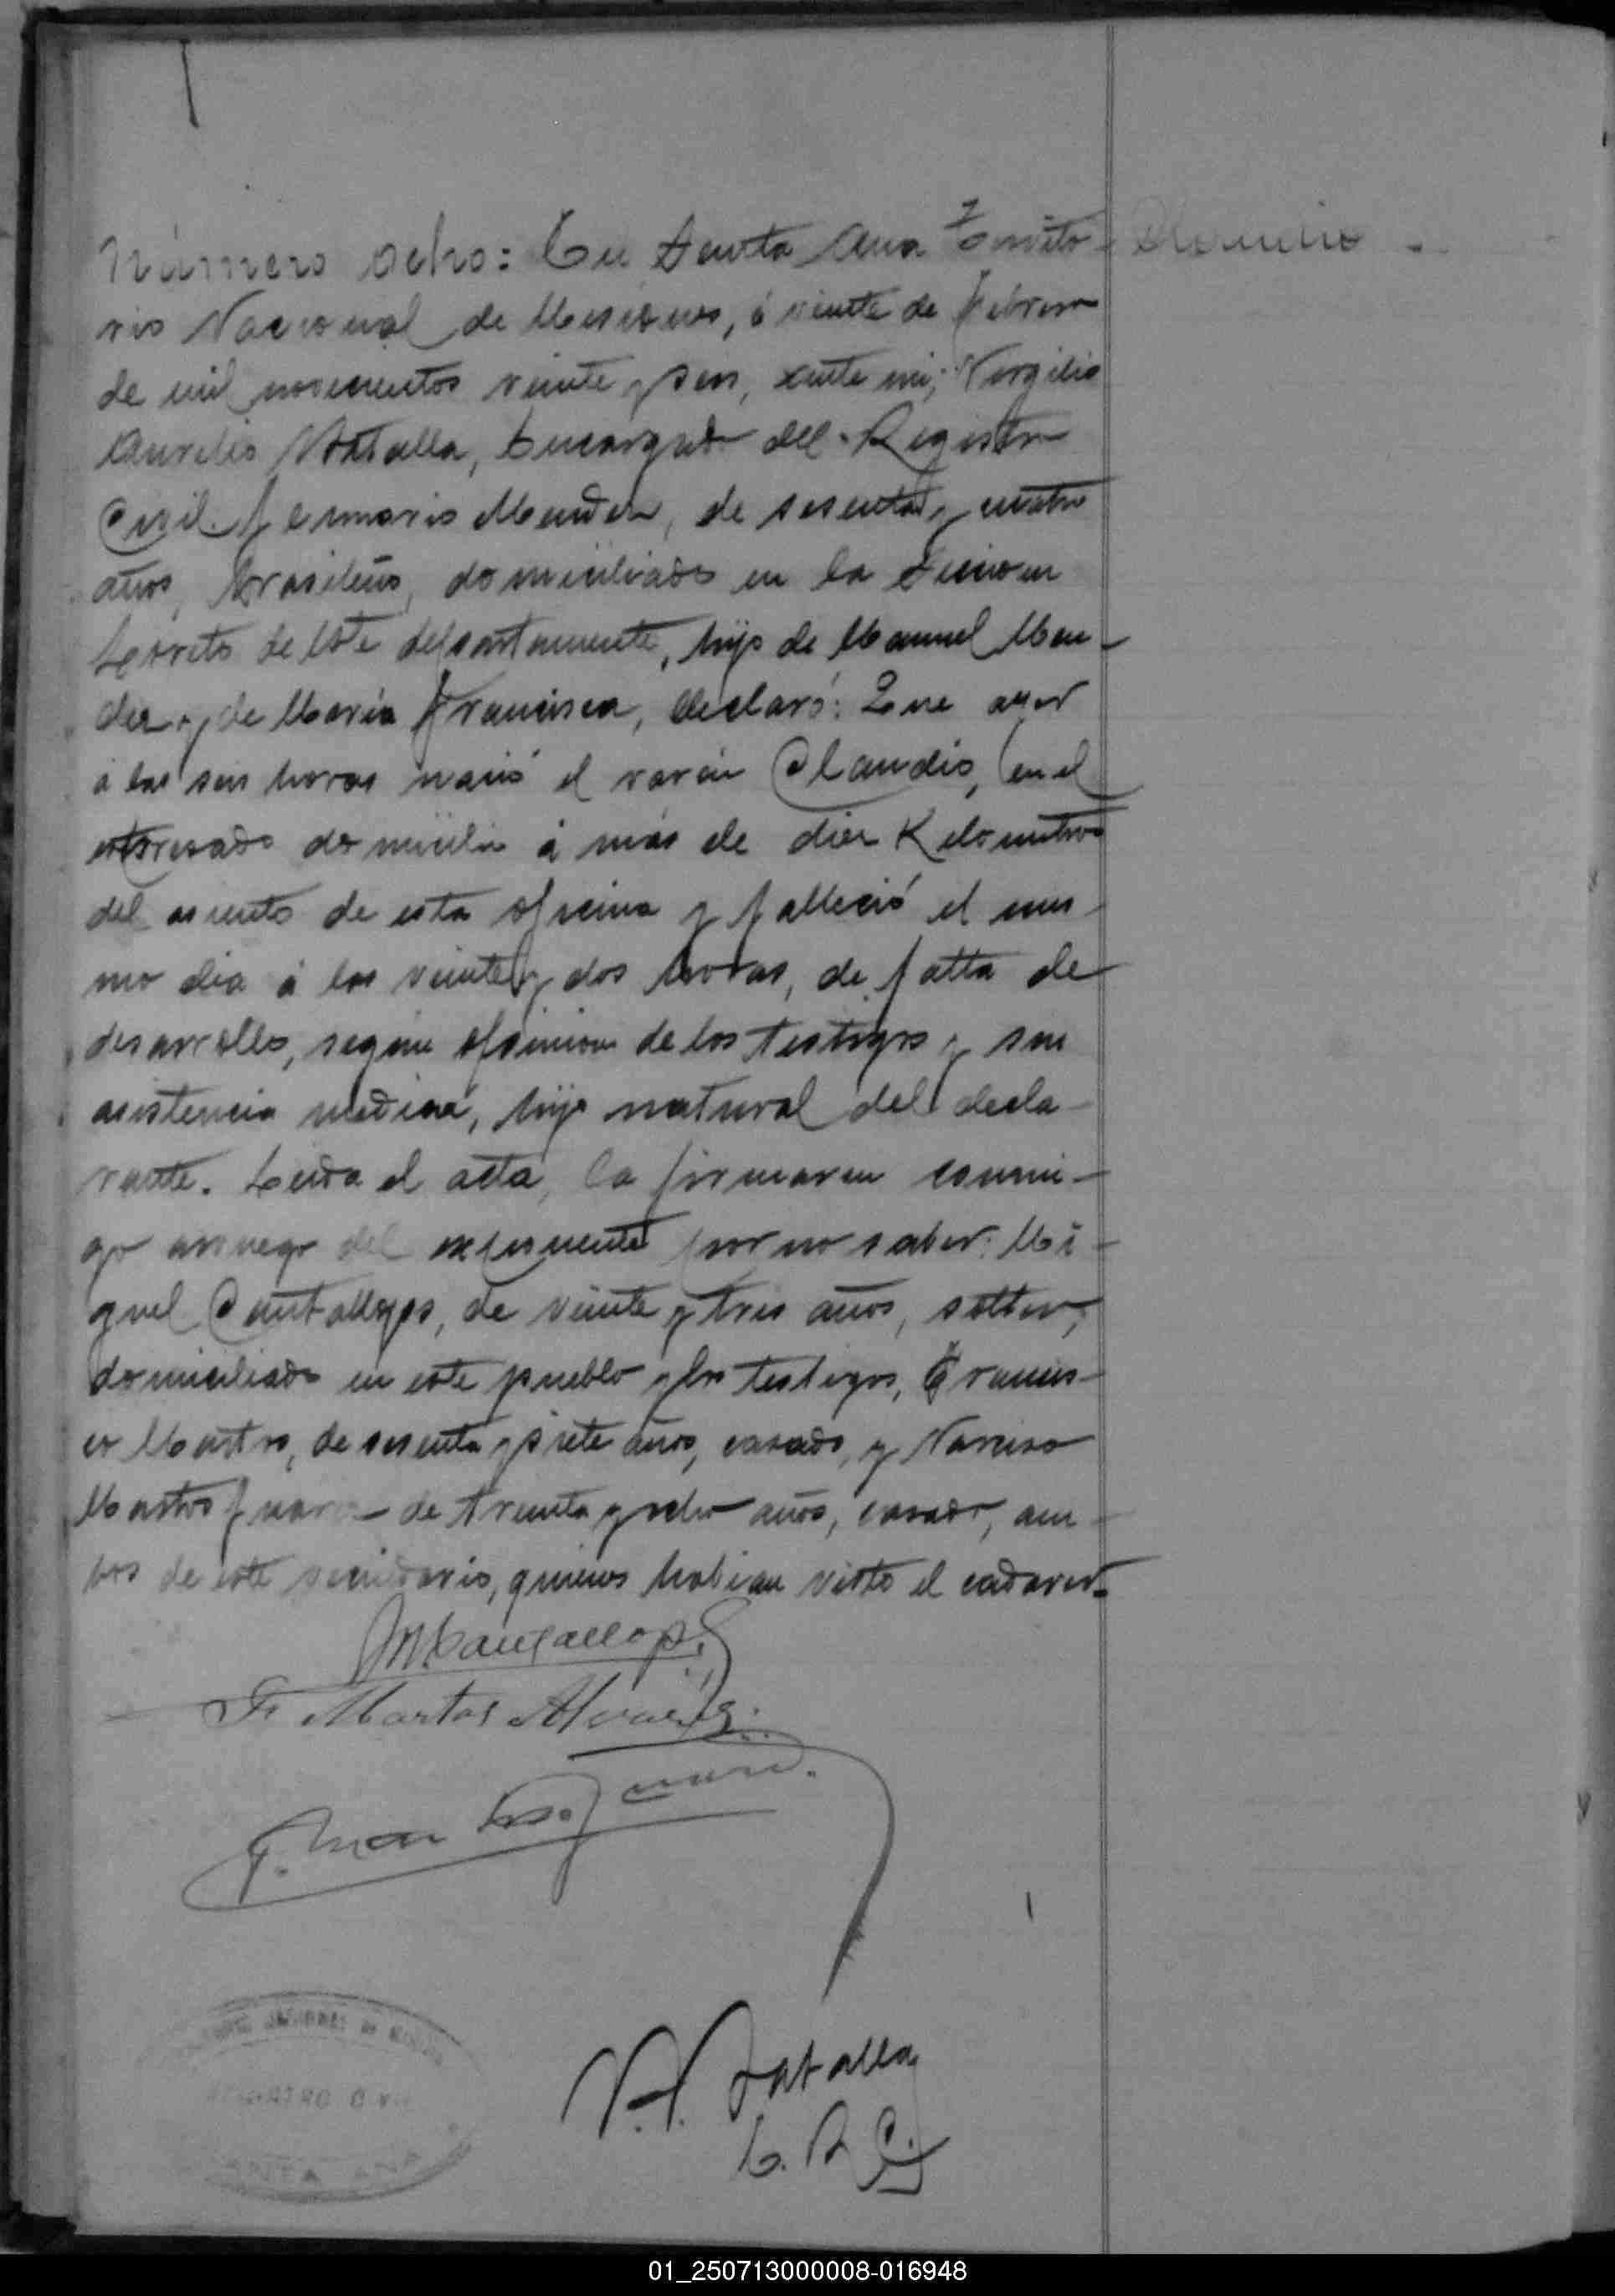 Número ocho: En Santa Ana Territo-
rio Nacional de Misiones, á veinte de Febrero
de mil novecientos veinte y seis, ante mi; Virgilio
Aurelio Batalla, Encargado del Registro
Civil. Jenuario Mendez, de sesenta y cuatro
años, brasileño, domiciliado en la Sección
Loreto de este departamento, hijo de Manuel Men-
dez y de Maria Francisca, declaró: Que ayer
á las seis horas nació el varón Claudio, en el
expresado domicilio á más de diez Kilometros
del asiento de esta oficina y falleció el mis-
mo dia á las veinte y dos horas, de falta de
desarrollo, según opinion de los testigos y sin
asistencia medica, hijo natural del decla-
rante. Leida el acta, la firmaron conmi-
go a ruego del exponente por no saber: Mi-
guel Cantallops, de veinte y tres años, soltero,
domiciliado en este pueblo y los testigos, Francis-
co Martos, de sesenta y siete años, casado, y Narciso
Martos de treinta y ocho años, casado, am-
bos de este vecindario, quienes habian visto el cadaver.
M Cantallops
F. Martos Alvarez
Martos
V. A. Batalla
E. R. C.
REGISTRO CIVIL
SANTA ANA
01_250713000008-016948